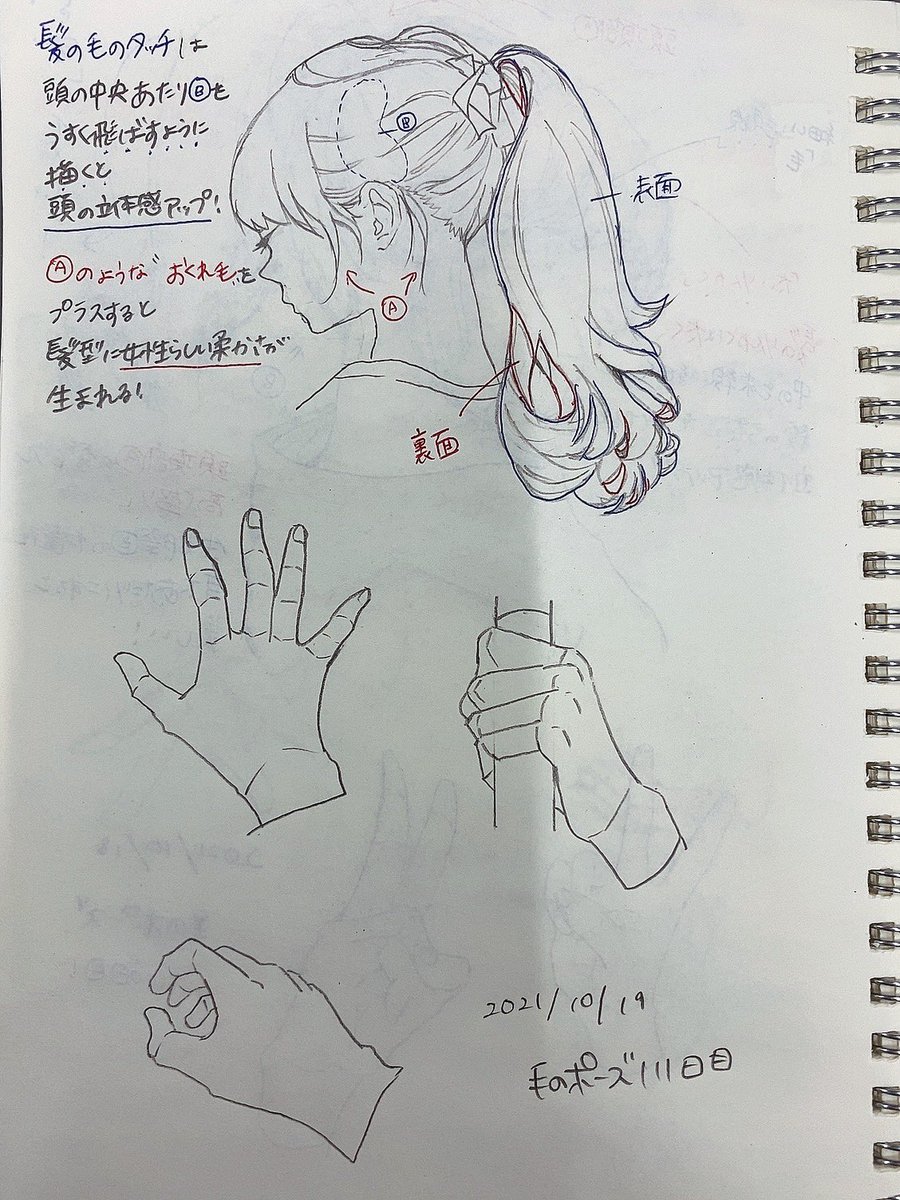 髪の毛のタッチは
頭の中央あたりⒷを
うすく飛ばすように
描くと
頭の立体感アップ!
Ⓐのような おくれ毛を
プラスすると
髪型に女性らしい柔かさが
生まれる!
Ⓑ
表面
Ⓐ
裏面
2021/10/19
毛のポーズ111日目